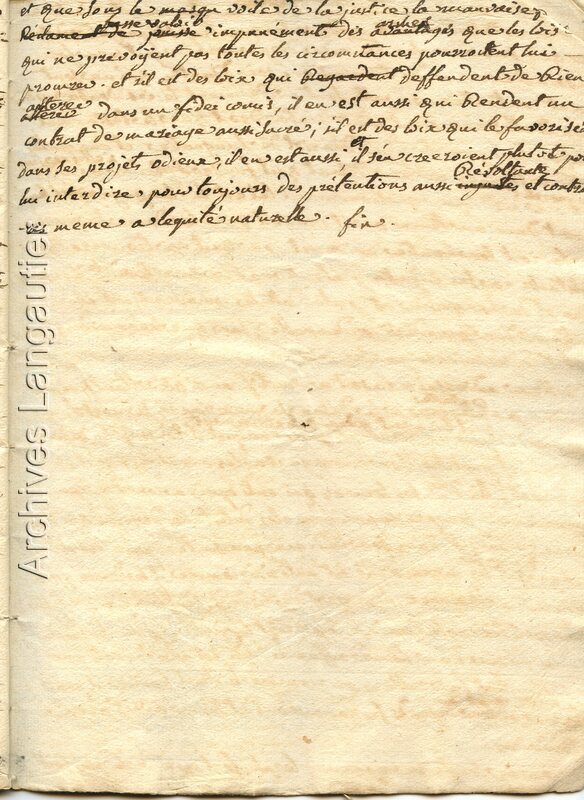 et que sous le masqu voile de la justice la mauvaise
puisse valoir armes
Reclament de puisse impunément des avantages que les lois
qui ne prevoyent pas toutes les circomstances pourroient lui
promrer . et s'il est des loix qui Regardent deffendent de Rien
alterer
alterer dans un fidei comis, il en est aussi qui Rendent un
contrat de mariage aussi sacré ; s'il est des loix qui le favorise
dans ses projets odieux, il en est aussi et il s'en creeroient plutot po
Revoltante
lui interdire pour toujours des prétentions aussi et contr
meme a lequité naturelle . fin .
Archives Langautie